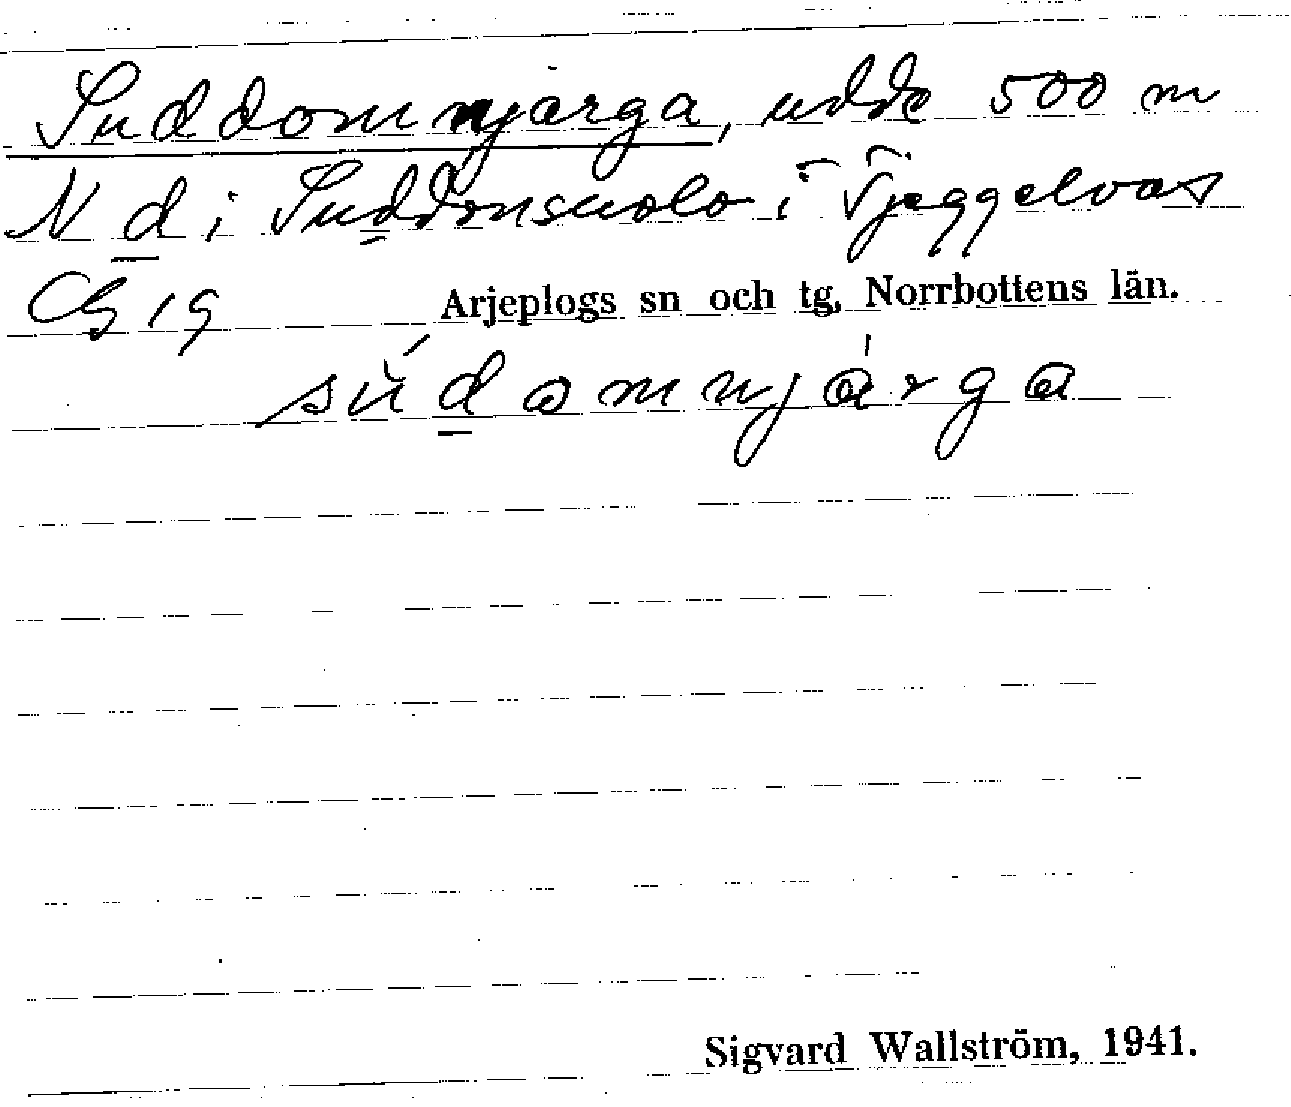 Suddomnjarga, udde 500 m
N d i Suddonsuolo i Tjeggelvas
CG 19 Arjeplogs sn och tg, Norrbottens län.
sŭ́d̲amnjárga
Sigvard Wallström, 1941.